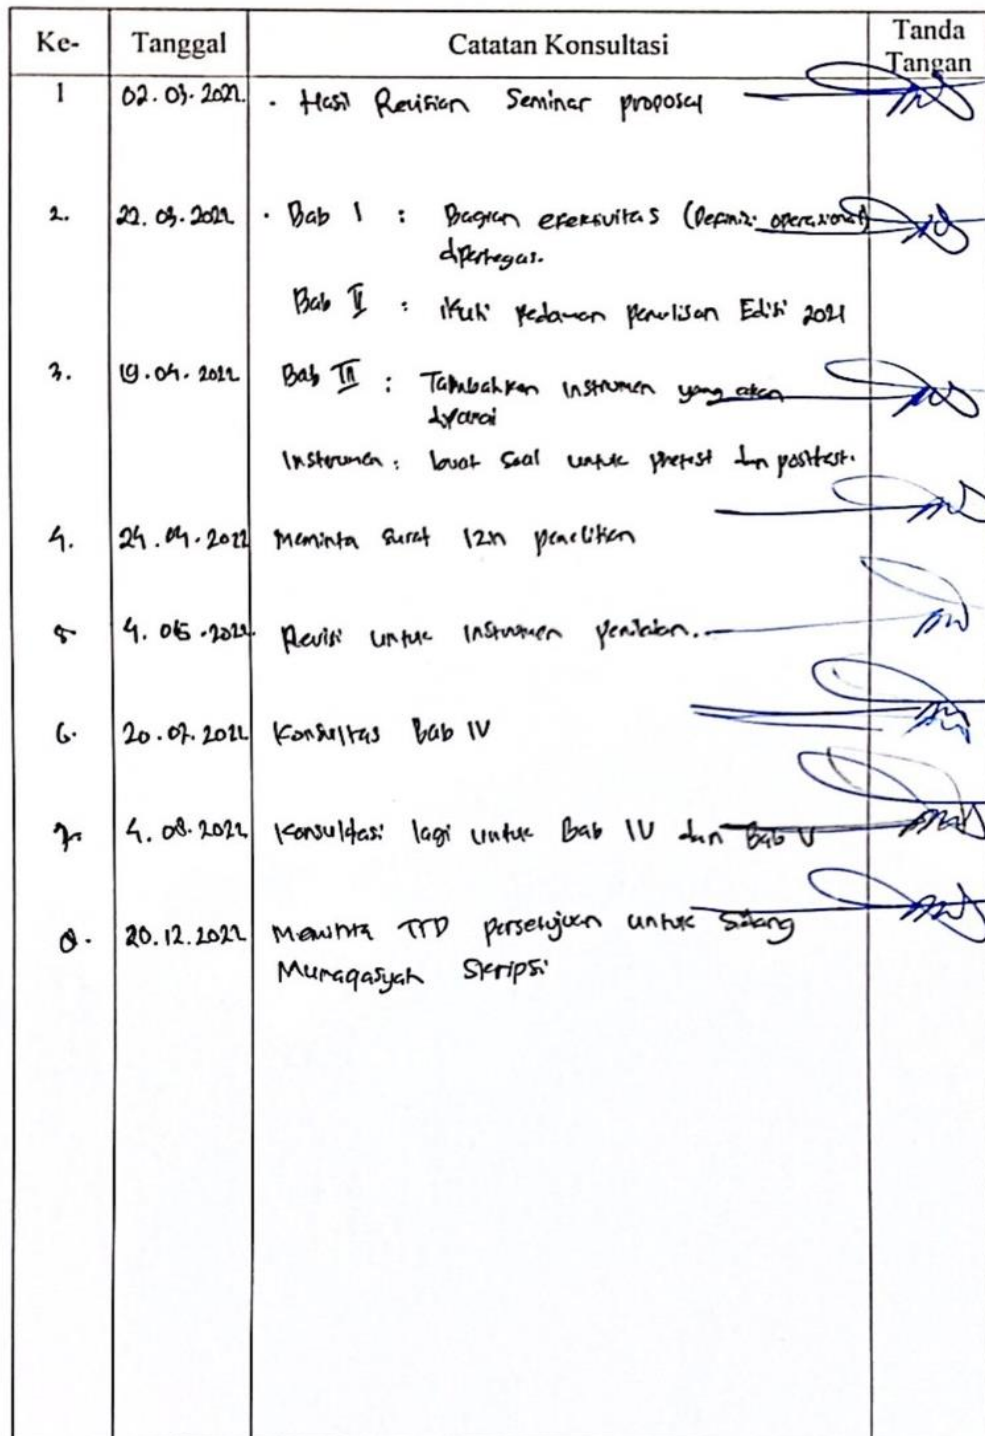 Ke- Tanggal Catatan Konsultasi Tanda Tangan
1 02.03.2022 . Hasil Revisian Seminar proposal
2. 22.03.2022 . Bab I : Bagian efektivitas (Definisi operasional)
dipertegas.
Bab II : ikuti pedoman penulisan Edisi 2021
3. 19.04.2022 Bab III : Tambahkan instrumen yang akan
dipakai
Instrumen : buat soal untuk pretest dan posttest.
4. 24.04.2022 Meminta surat izin penelitian
5. 4.05.2022. Revisi untuk instrumen penilaian.
6. 20.07.2022 Konsultas Bab IV
7. 4.08.2022 Konsultasi lagi untuk Bab IV dan Bab V
8. 20.12.2022 Meminta TTD persetujuan untuk Sidang
Munaqasyah Skripsi